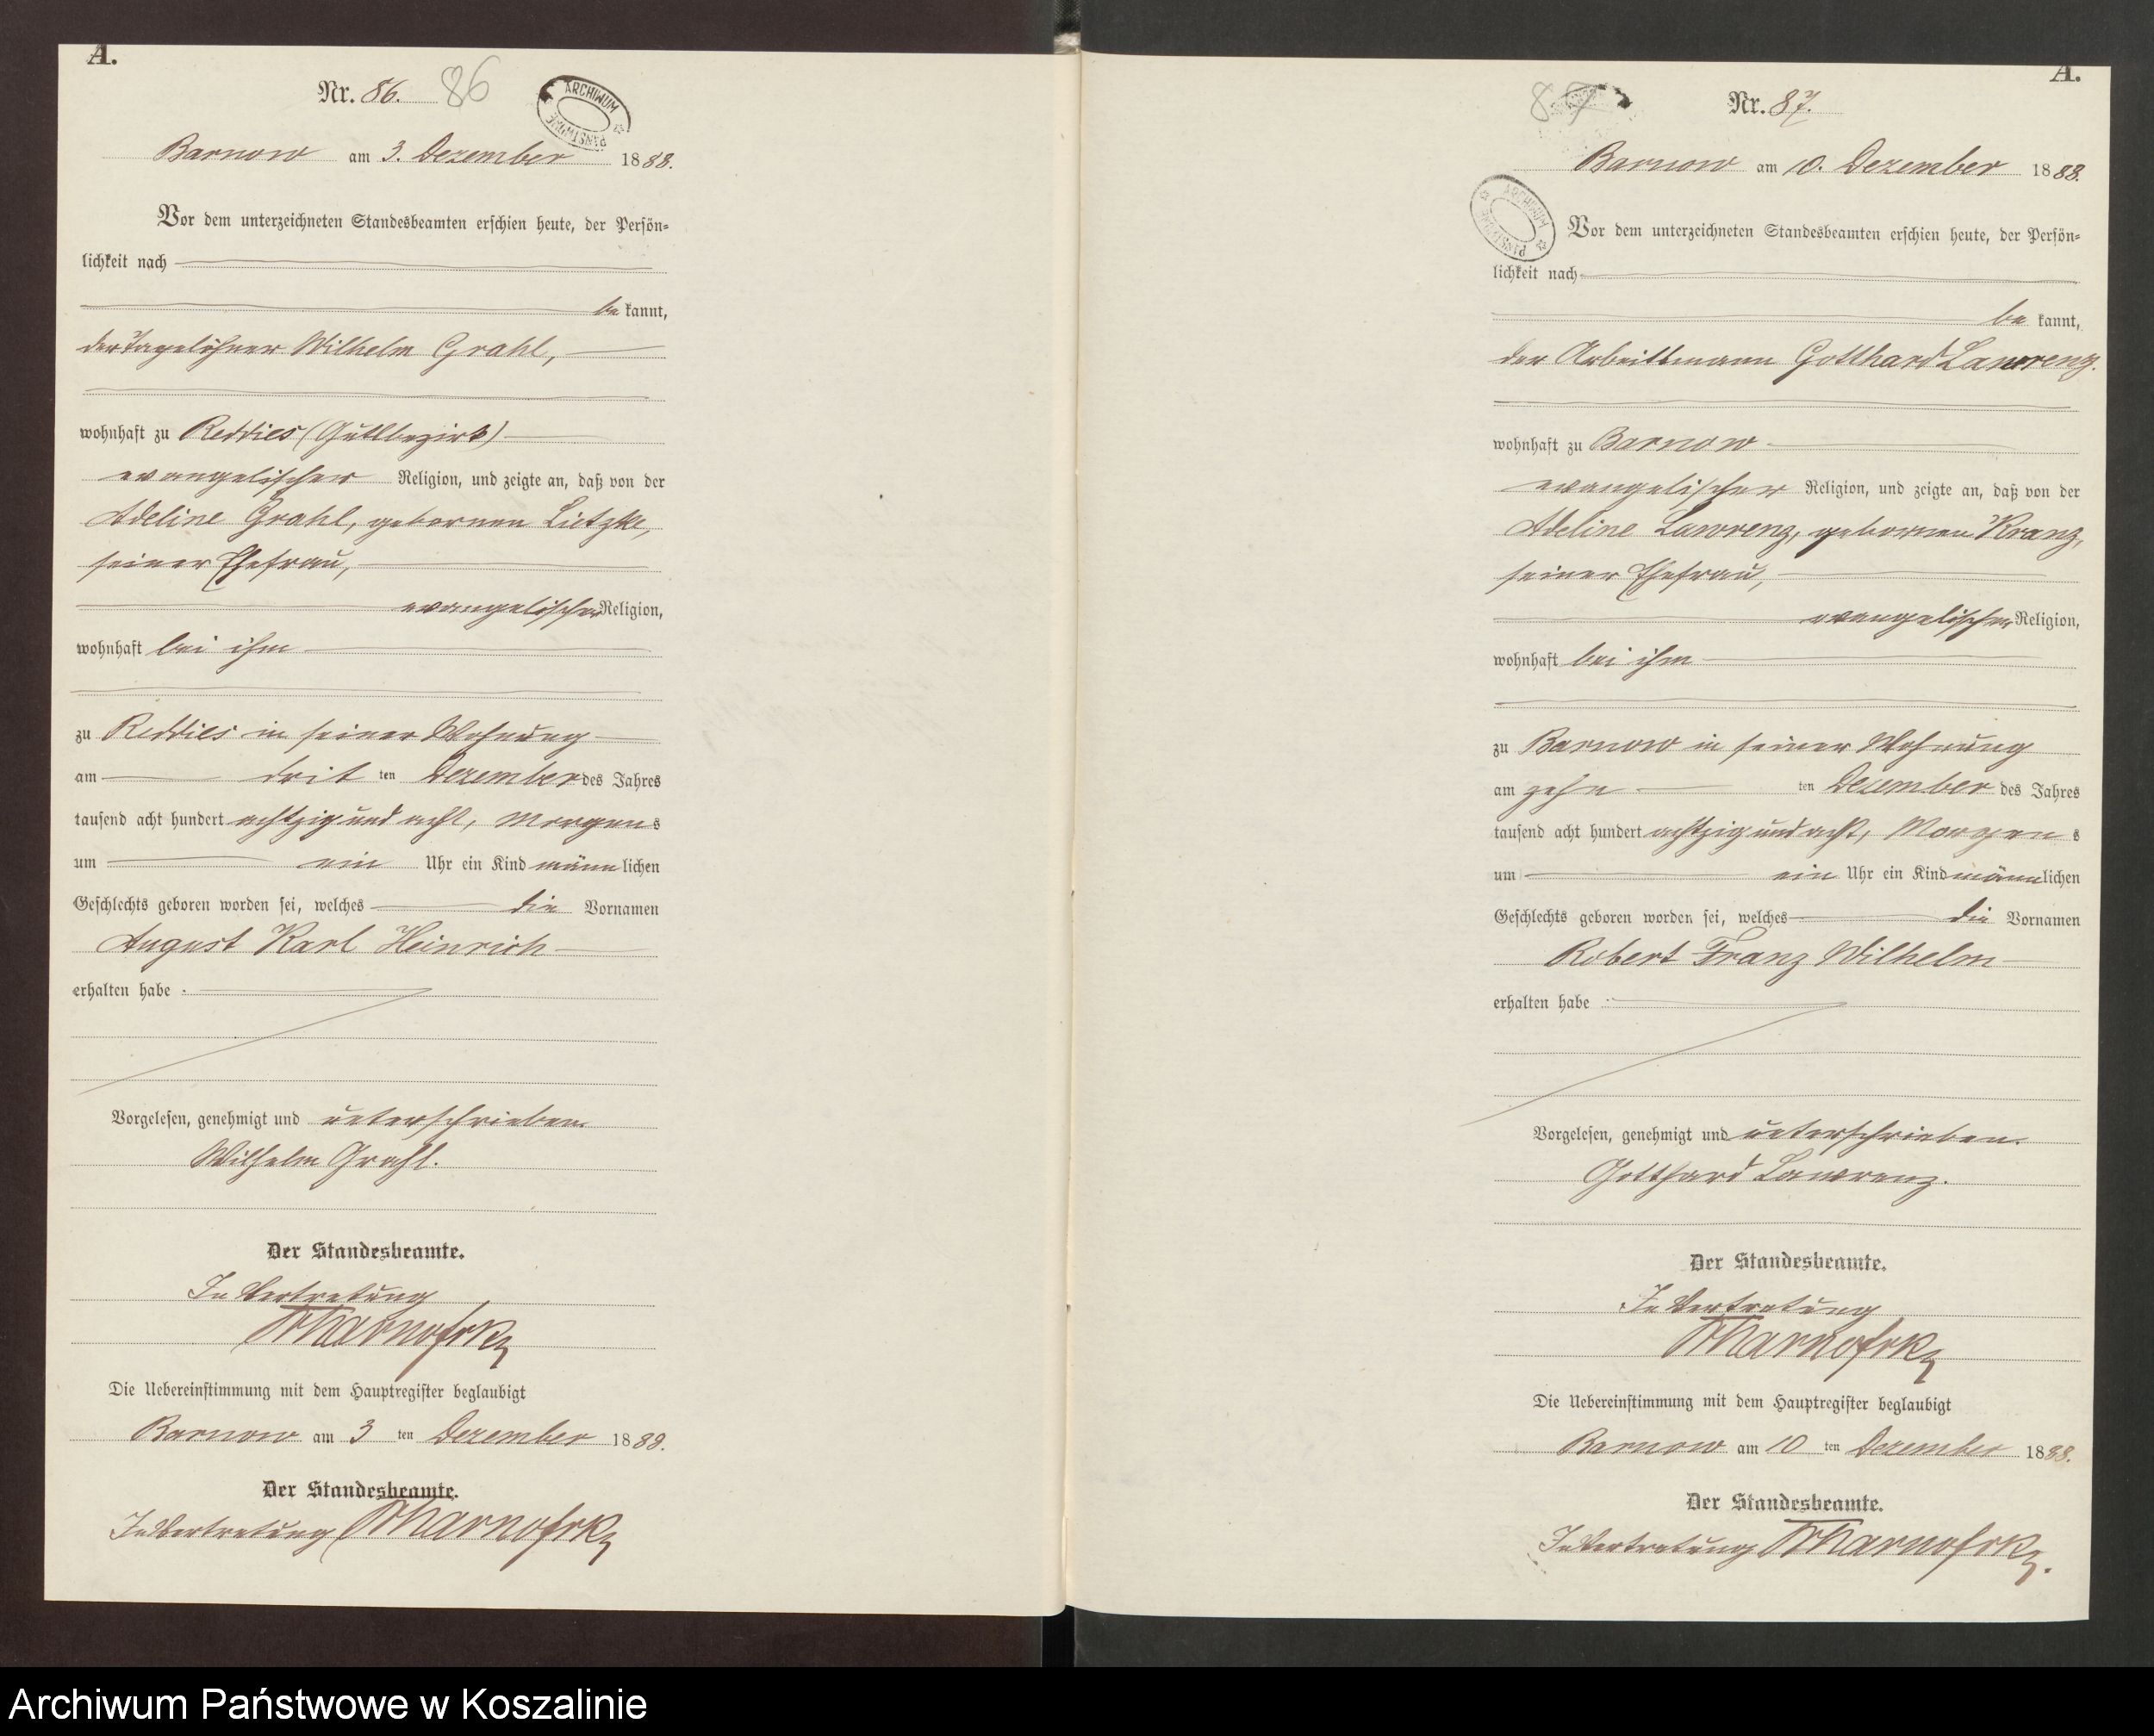 A.
Nr. 86. 86
ARCHIWUM PAŃSTWOWE
Barnow am 3. Dezember 1888.
Vor dem unterzeichneten Standesbeamten erschien heute, der Persön-
lichkeit nach
be kannt,
der Tagelöhner Wilhelm Grahl,
wohnhaft zu Reddies (Gutsbezirk)
evangelischer Religion, und zeigte an, daß von der
Adeline Grahl, gebornen Lietzke,
seiner Ehefrau,
evangelischer Religion,
wohnhaft bei ihm
zu Reddies in seiner Wohnung
am drit ten Dezember des Jahres
tausend acht hundert achtzig und acht, Morgens
um ein Uhr ein Kind männlichen
Geschlechts geboren worden sei, welches die Vornamen
August Karl Heinrich
erhalten habe
Vorgelesen, genehmigt und unterschrieben.
Wilhelm Grahl.
Der Standesbeamte.
In Vertretung
Die Uebereinstimmung mit dem Hauptregister beglaubigt
Barnow am 3 ten Dezember 1888.
Der Standesbeamte.
In Vertretung
A.
87 Nr. 87.
Barnow am 10. Dezember 1888.
ARCHIWUM PAŃSTWOWE
Vor dem unterzeichneten Standesbeamten erschien heute, der Persön-
lichkeit nach
be kannt,
der Arbeitsmann Gotthard Lawrenz.
wohnhaft zu Barnow
evangelischer Religion, und zeigte an, daß von der
Adeline Lawrenz, gebornen Kranz,
seiner Ehefrau,
evangelischer Religion,
wohnhaft bei ihm
zu Barnow in seiner Wohnung
am zehn ten Dezember des Jahres
tausend acht hundert achtzig und acht, Morgens
um ein Uhr ein Kind männlichen
Geschlechts geboren worden sei, welches die Vornamen
Robert Franz Wilhelm
erhalten habe
Vorgelesen, genehmigt und unterschrieben.
Gotthard Lawrenz.
Der Standesbeamte.
In Vertretung
Die Uebereinstimmung mit dem Hauptregister beglaubigt
Barnow am 10 ten Dezember 1888.
Der Standesbeamte.
In Vertretung
Archiwum Państwowe w Koszalinie